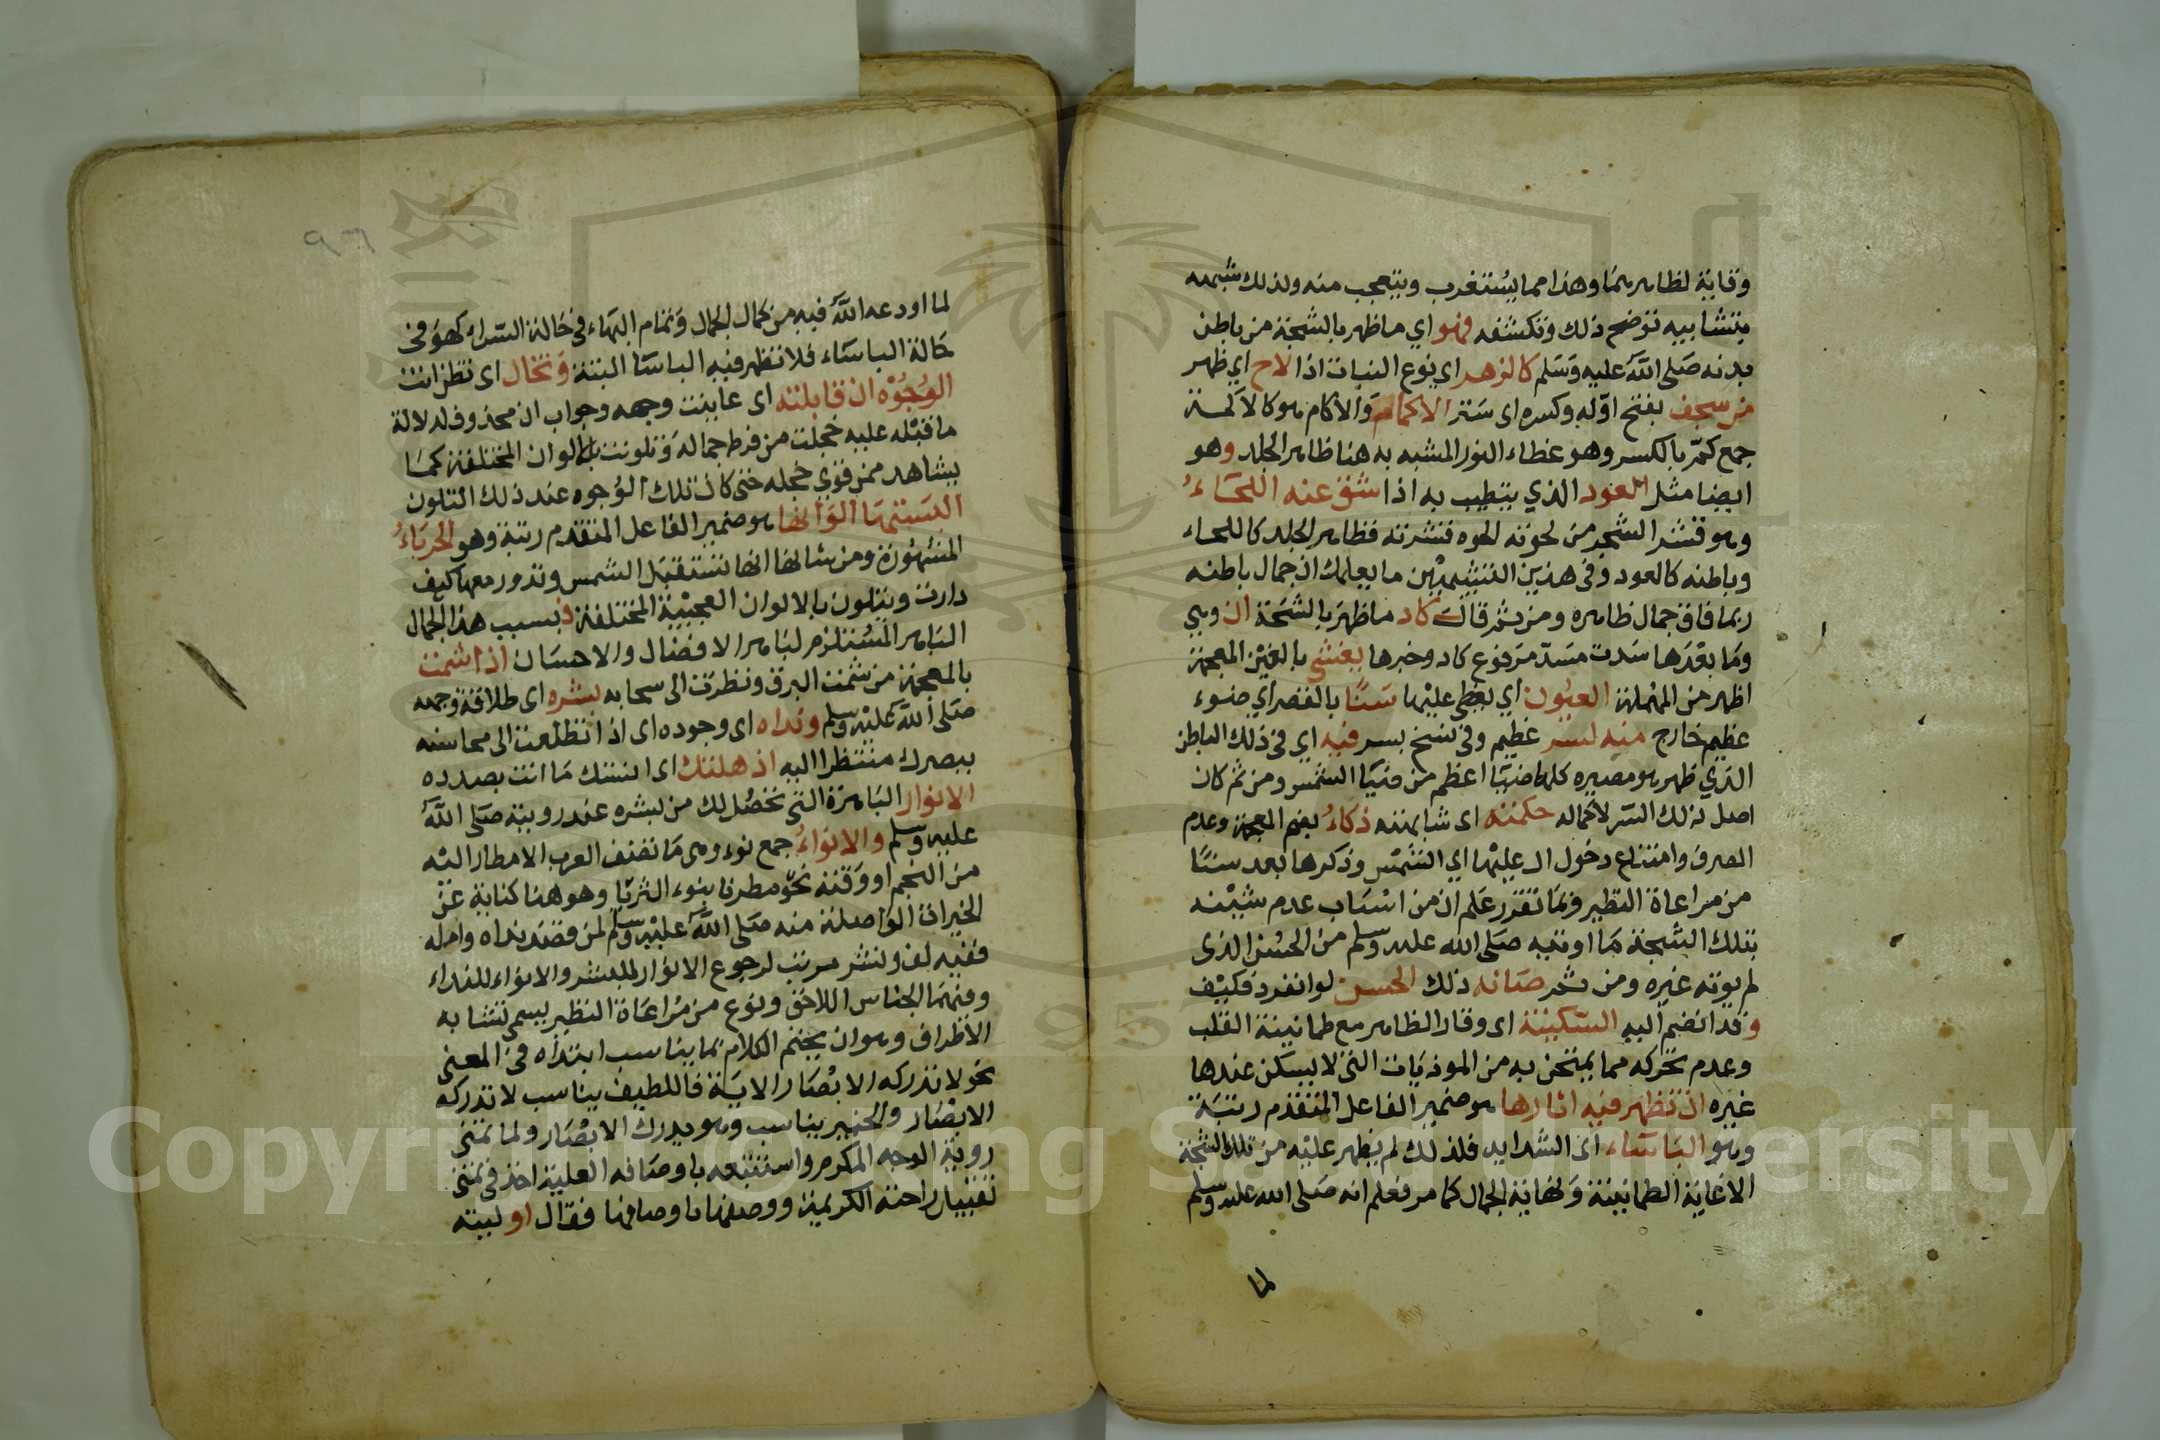 وقاية لظاهرهما وهذا مما يستغرب ويتعجب منه ولذلك شبهه
بتشابيه توضح ذلك وتكشفه فهو اي ما ظهر بالشجة من باطن
بدنه صَلى اللّه عليه وَسَلم كالزهر اي نوع النبات اذا لاح اي ظهر
من سجف بفتح اوّله وكسره اى سَتر الاكمام وَالاكام هو كالاكمة
جمع كمّ بالكسر وهو غطاء النور المشبه به هنا ظاهر الجلد وهو
ايضا مثل العود الذي يتطيب به اذا شق عنه اللحَاءُ
وهو قشر الشجر من لحوته الحوه قشرته فظاهر الجلد كاللحاء
وباطنه كالعود وفى هذين التشبيهين ما يعلمك ان جمال باطنه
ربما فاق جمال ظاهره ومن ثم قال كاد ما ظهر بالشجة ان وهي
ومَا بعْدَها سَدت مسَدّ مَرفوع كاد وخبرها يغشي بالغين المعجمة
اظهر من المهْملة العيُون اي يغطى عليْها سَنًا بالقصر اي ضوء
عظيم خارج منه لسر عظيم وفى نسخ بسر فيه اى فى ذلك الباطن
الذي ظهر هو مصيره كله ضيَا اعظم من ضيَا الشمس ومن ثم كان
اصل ذلك السر لاكماله حكمته اى شابهته ذكاءُ بضم المعجمة وعدم
الصرف وامتناع دخول ال عليْها اي الشمْس وذكرها بعد سنًا
من مراعاة النظير وبمَا تقرر علم ان من اسْبَاب عدم شيْنه
بتلك الشجة مَا اوتيه صَلى الله عليه وسلم من الحسُن الذى
لم يوته غيره ومن ثم صَانه ذلك الحسن لو انفرد فكيْف
وَقد انضم اليه السّكينة اى وقار الظاهر مع طمانينة القلب
وعدم تحركه مما يمتحن به من الموذيَات التى لا يسكن عندها
غيره ان تظهر فيه اثارها هو ضمير الفاعل المتقدم رتبَة
وهو البَاسَاء اى الشدايد فلذلك لم يظهر عليْه من تلك الشجة
الا غاية الطمانينة وَنهاية الجمال كما مر فعلم انه صَلى الله عليه وسلم
لما
٩٦
لما اودعه اللّه فيه من كمال الجمال وَتمام البهاء فى حَالة السّراء كهوَ فى
حَالة الباسَاء فلا تظهر فيه الباسَا البتة وَتخال اى تظن انت
الوُجُوْه ان قابلته اى عاينت وجهه وجواب ان محذوف لدلالة
ما قبْله عليه خجلت من فرط جماله وَتلونت بالوان المختلفة كمَا
يشاهد ممن قوي خجله حتى كان تلك الوُجوه عند ذلك التلون
البَستهَا الوَانها هو ضمير الفاعل المتقدم رتبة وهو الحربَاءُ
المشهوْرة ومن شانها انها تستقبَل الشمس وتدور معها كيف
دارت وتتلون بالالوان العجيْبة المختلفة فبسبب هذا الجمال
البَاهر المسْتلزم لبَاهر الافضال والاحسَان اذا شمت
بالمعجمة من شمْت البرق ونظرت الى سحابه بشره اى طلاقة وجهه
صَلى اللّه عليْه وسلم ونداه اى وجوده اى اذا تطلعت الى محاسنه
ببصرك منتظرا اليه اذهلتك اى انستك مَا انت بصدده
الانوار البَاهرة التى تحصُل لك من بشره عند رويته صَلى اللّه
عليه وسلم والانواءُ جمع نوء وهى مَا تضف العرب الامطار اليْه
من النجم او وَقته نحوُ مطرنا بنوء الثريّا وهو هنا كناية عن
الخيرات الوَاصلة منه صَلى اللّه عليْه وسلم لمن قصَد نداه وامله
ففيه لف ونشر مرتب لرجوع الانوار للبشر والانواء للنداء
وبينهمَا الجناس اللاحق ونوع من مُراعَاة النظير يسمى تشابه
الاطراف وهو ان يختم الكلام بما يناسب ابتداه فى المعنى
نحو لا تدركه الابْصَار الايَة فاللطيف يناسب لا تدركه
الابْصَار والخبير يناسب وهو يدرك الابْصَار ولما تمنى
روية الوجه المكرم واستتبعه باوصَافه العلية اخذ فى تمنى
تقبيل راحته الكريمة ووصفها باوصافها فقال او ليته